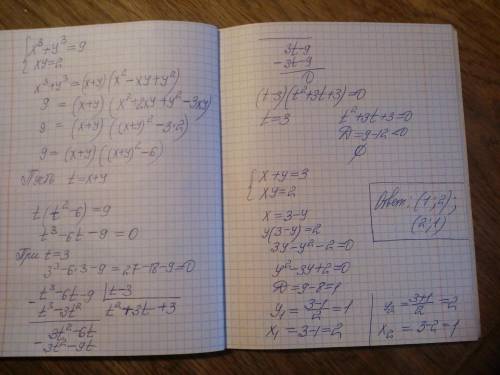 { x³+y³=9
xy=2
x³+y³=(x+y)(x²-xy+y²)
9 = (x+y)(x²+2xy+y²-3xy)
9 = (x+y)((x+y)²-3·2)
9 = (x+y)((x+y)²-6)
Пусть t=x+y
t(t²-6)=9
t³-6t-9=0
При t=3
3³-6·3-9=27-18-9=0
- t³-6t-9 | t-3
t³-3t² t²+3t+3
3t²-6t
- 3t²-9t
3t-9
- 3t-9
0
(t-3)(t²+3t+3)=0
t=3 t²+3t+3=0
D=9-12<0
∅
{ x+y=3
xy=2
x=3-y
y(3-y)=2
3y-y²-2=0
y²-3y+2=0
D=9-8=1
y₁=3-1/2=1
x₁=3-1=2
Ответ: (1;2);
(2;1)
y₂=3+1/2=2
x₂=3-2=1